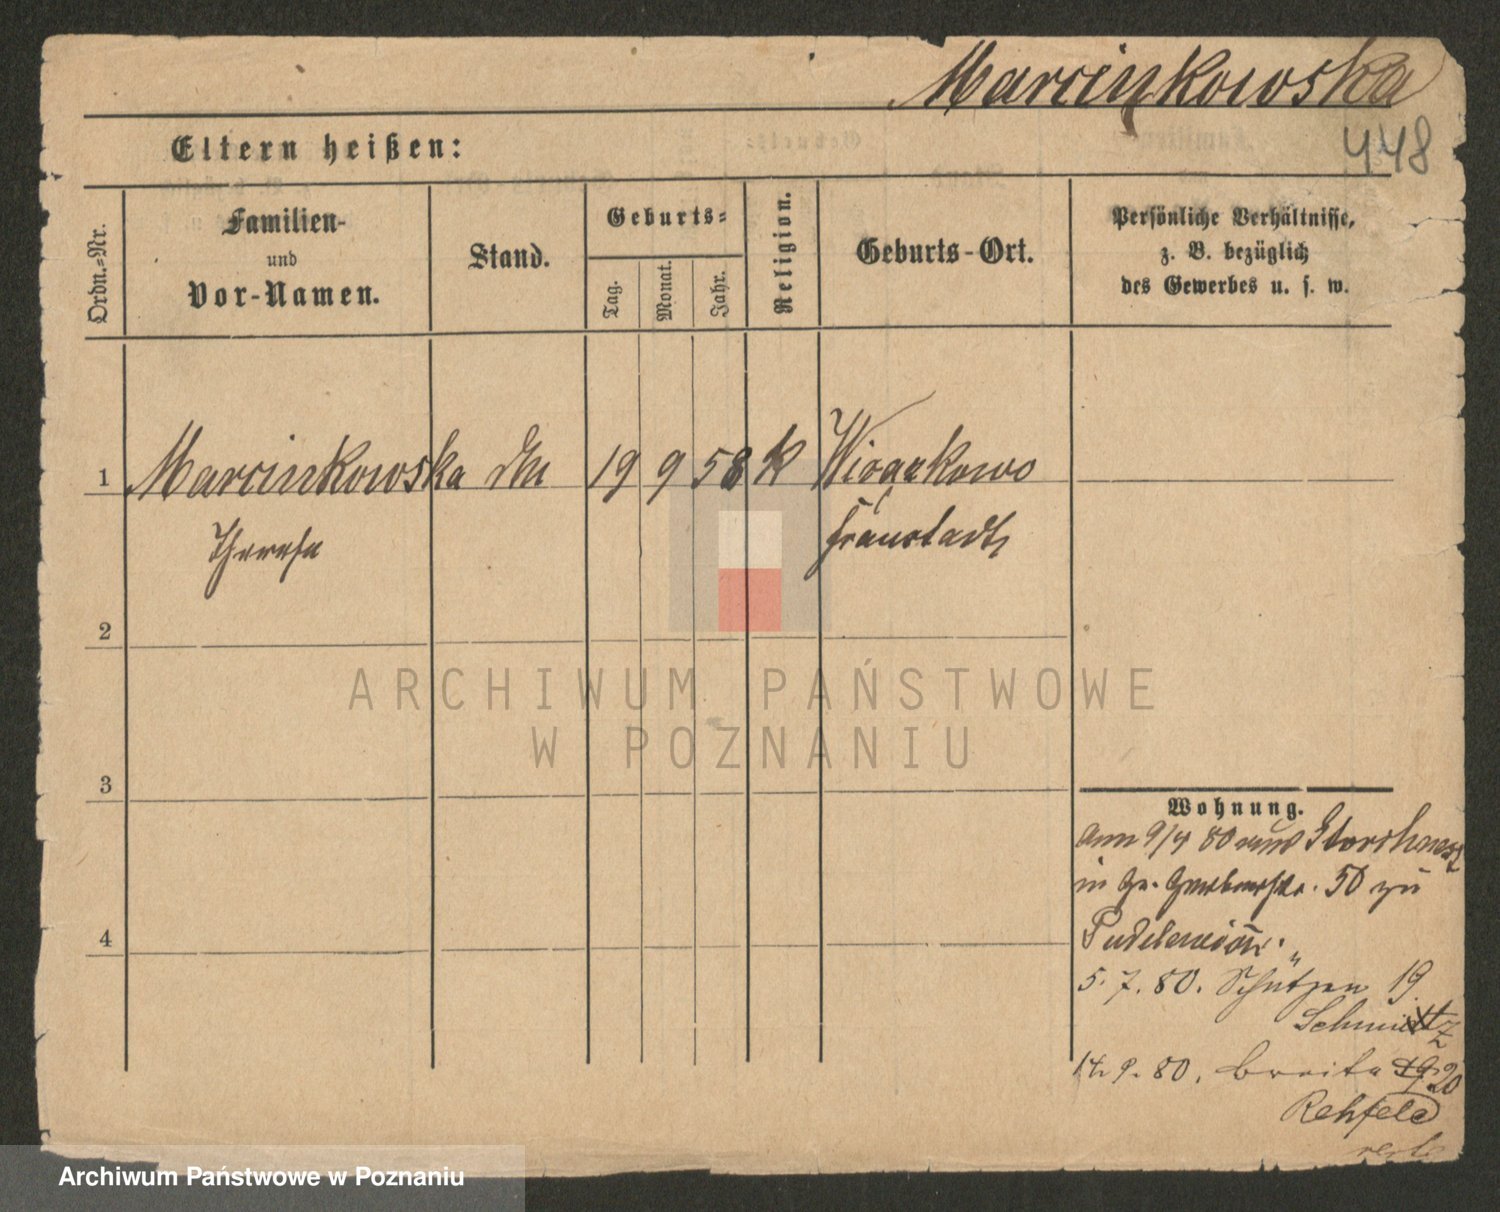 Marcinkowska
448
Eltern heißen:
Ordn.-Nr.
Familien-
und
Vor-Namen.
Stand.
Geburts-
Tag.
Monat.
Jahr.
Religion.
Geburts-Ort.
Persönliche Verhältnisse,
z. B. bezüglich
des Gewerbes u. s. w.
1 Marcinkowska 19 9 58 k
Therese Fraustadt
2
3
4
Wohnung.
9/4 80 aus Storchnest
in Gr. Gerberstr. 50 zu
5. 7. 80. Schützen 19
Schmidt
14. 9. 80. Breite 20
Rehfeld
verte
ARCHIWUM PAŃSTWOWE
W POZNANIU
Archiwum Państwowe w Poznaniu